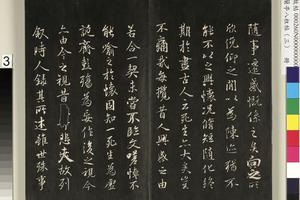 隨事遷感慨係之矣向之所
欣俛仰之間以為陳迹猶不
能不以之興懷況脩短隨化終
期於盡古人云死生亦大矣豈
不痛哉每攬昔人興感之由
若合一契未嘗不臨文嗟悼不
能喻之於懷固知一死生為虛
誕齊彭殤為妄作後之視今
亦由今之視昔悲夫故列
敘時人錄其所述雖世殊事
3